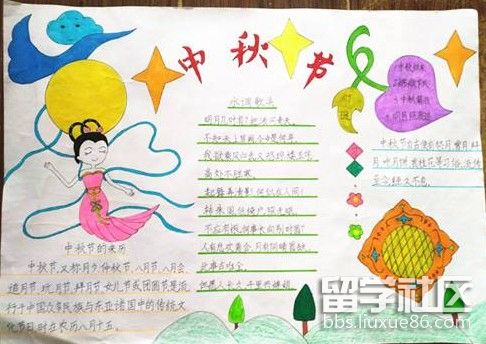 中秋节
水调歌头
明月几时有？把酒问青天。
不知天上宫阙今夕是何年
我欲乘风归去又恐琼楼玉宇
高处不胜寒。
起舞弄清影何似在人间！
转朱阁低绮户照无眠。
不应有恨何事长向别时圆？
人有悲欢离合月有阴晴圆缺
此事古难全
但愿人长久千里共婵娟
中秋节的来历
中秋节，又称月夕仲秋节、八月节、八月会、
追月节、玩月节、拜月节、女儿节或团圆节是流
行于中国众多民族与东亚诸国中的传统文
化节日时在农历八月十五。
中秋节自古便有祭月赏月拜
月吃月饼赏桂花等习俗流传
至今经久不息。
留学社区
bbs.liuxue86.com